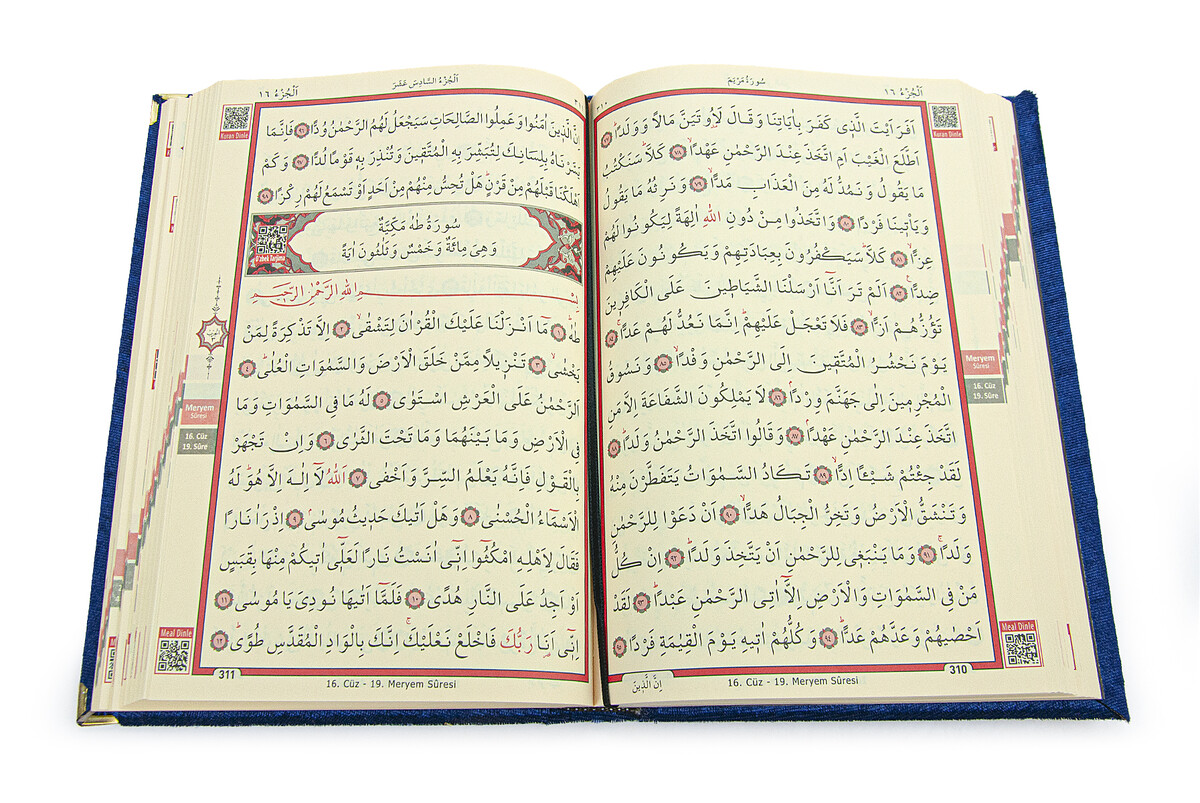 اَلْجُزْءُ ١٦
سُورَةُ مَرْيَمَ
Kuran Dinle
اَفَرَاَيْتَ الَّذ۪ي كَفَرَ بِاٰيَاتِنَا وَقَالَ لَاُو۫تَيَنَّ مَالًا وَوَلَدًاۜ ﴿٧٧﴾
اَطَّلَعَ الْغَيْبَ اَمِ اتَّخَذَ عِنْدَ الرَّحْمٰنِ عَهْدًاۙ ﴿٧٨﴾ كَلَّاۜ سَنَكْتُبُ
مَا يَقُولُ وَنَمُدُّ لَهُ مِنَ الْعَذَابِ مَدًّاۙ ﴿٧٩﴾ وَنَرِثُهُ مَا يَقُولُ
وَيَأْت۪ينَا فَرْدًا ﴿٨٠﴾ وَاتَّخَذُوا مِنْ دُونِ اللّٰهِ اٰلِهَةً لِيَكُونُوا لَهُمْ
عِزًّاۙ ﴿٨١﴾ كَلَّاۜ سَيَكْفُرُونَ بِعِبَادَتِهِمْ وَيَكُونُونَ عَلَيْهِمْ
ضِدًّا۟ ﴿٨٢﴾ اَلَمْ تَرَ اَنَّٓا اَرْسَلْنَا الشَّيَاط۪ينَ عَلَى الْكَافِر۪ينَ
تَؤُزُّهُمْ اَزًّاۙ ﴿٨٣﴾ فَلَا تَعْجَلْ عَلَيْهِمْۜ اِنَّمَا نَعُدُّ لَهُمْ عَدًّاۚ ﴿٨٤﴾
يَوْمَ نَحْشُرُ الْمُتَّق۪ينَ اِلَى الرَّحْمٰنِ وَفْدًاۙ ﴿٨٥﴾ وَنَسُوقُ
الْمُجْرِم۪ينَ اِلٰى جَهَنَّمَ وِرْدًاۢ ﴿٨٦﴾ لَا يَمْلِكُونَ الشَّفَاعَةَ اِلَّا مَنِ
اتَّخَذَ عِنْدَ الرَّحْمٰنِ عَهْدًاۢ ﴿٨٧﴾ وَقَالُوا اتَّخَذَ الرَّحْمٰنُ وَلَدًاۜ ﴿٨٨﴾
لَقَدْ جِئْتُمْ شَيْـًٔا اِدًّاۙ ﴿٨٩﴾ تَكَادُ السَّمٰوَاتُ يَتَفَطَّرْنَ مِنْهُ
وَتَنْشَقُّ الْاَرْضُ وَتَخِرُّ الْجِبَالُ هَدًّاۙ ﴿٩٠﴾ اَنْ دَعَوْا لِلرَّحْمٰنِ
وَلَدًاۚ ﴿٩١﴾ وَمَا يَنْبَغ۪ي لِلرَّحْمٰنِ اَنْ يَتَّخِذَ وَلَدًاۜ ﴿٩٢﴾ اِنْ كُلُّ
مَنْ فِي السَّمٰوَاتِ وَالْاَرْضِ اِلَّٓا اٰتِي الرَّحْمٰنِ عَبْدًاۜ ﴿٩٣﴾ لَقَدْ
اَحْصٰيهُمْ وَعَدَّهُمْ عَدًّاۜ ﴿٩٤﴾ وَكُلُّهُمْ اٰت۪يهِ يَوْمَ الْقِيٰمَةِ فَرْدًاۜ ﴿٩٥﴾
Meryem
Sûresi
16. Cüz
19. Sûre
Meal Dinle
310
16. Cüz - 19. Meryem Sûresi
اِنَّ الَّذ۪ينَ
اَلْجُزْءُ السَّادِسَ عَشَرَ
اَلْجُزْءُ ١٦
Kuran Dinle
اِنَّ الَّذ۪ينَ اٰمَنُوا وَعَمِلُوا الصَّالِحَاتِ سَيَجْعَلُ لَهُمُ الرَّحْمٰنُ وُدًّا ﴿٩٦﴾ فَاِنَّمَا
يَسَّرْنَاهُ بِلِسَانِكَ لِتُبَشِّرَ بِهِ الْمُتَّق۪ينَ وَتُنْذِرَ بِه۪ قَوْمًا لُدًّا ﴿٩٧﴾ وَكَمْ
اَهْلَكْنَا قَبْلَهُمْ مِنْ قَرْنٍۜ هَلْ تُحِسُّ مِنْهُمْ مِنْ اَحَدٍ اَوْ تَسْمَعُ لَهُمْ رِكْزًا ﴿٩٨﴾
سُورَةُ طٰهٰ مَكِّيَّةٌ
وَهِيَ مِائَةٌ وَخَمْسٌ وَثَلٰثُونَ اٰيَةً
Özbek Tarjima
بِسْمِ اللّٰهِ الرَّحْمٰنِ الرَّح۪يمِ
طٰهٰۜ ﴿١﴾ مَٓا اَنْزَلْنَا عَلَيْكَ الْقُرْاٰنَ لِتَشْقٰىۙ ﴿٢﴾ اِلَّا تَذْكِرَةً لِمَنْ
يَخْشٰىۙ ﴿٣﴾ تَنْز۪يلًا مِمَّنْ خَلَقَ الْاَرْضَ وَالسَّمٰوَاتِ الْعُلٰىۜ ﴿٤﴾
اَلرَّحْمٰنُ عَلَى الْعَرْشِ اسْتَوٰى ﴿٥﴾ لَهُ مَا فِي السَّمٰوَاتِ وَمَا
فِي الْاَرْضِ وَمَا بَيْنَهُمَا وَمَا تَحْتَ الثَّرٰى ﴿٦﴾ وَاِنْ تَجْهَرْ
بِالْقَوْلِ فَاِنَّهُ يَعْلَمُ السِّرَّ وَاَخْفٰى ﴿٧﴾ اَللّٰهُ لَٓا اِلٰهَ اِلَّا هُوَۜ لَهُ
الْاَسْمَٓاءُ الْحُسْنٰى ﴿٨﴾ وَهَلْ اَتٰيكَ حَد۪يثُ مُوسٰىۢ ﴿٩﴾ اِذْ رَاٰ نَارًا
فَقَالَ لِاَهْلِهِ امْكُـثُٓوا اِنّ۪ٓي اٰنَسْتُ نَارًا لَعَلّ۪ٓي اٰت۪يكُمْ مِنْهَا بِقَبَسٍ
اَوْ اَجِدُ عَلَى النَّارِ هُدًى ﴿١٠﴾ فَلَمَّٓا اَتٰيهَا نُودِيَ يَا مُوسٰىۜ ﴿١١﴾
اِنّ۪ٓي اَنَا۬ رَبُّكَ فَاخْلَعْ نَعْلَيْكَۚ اِنَّكَ بِالْوَادِ الْمُقَدَّسِ طُوًىۜ ﴿١٢﴾
Meryem
Sûresi
16. Cüz
19. Sûre
Meal Dinle
311
16. Cüz - 19. Meryem Sûresi